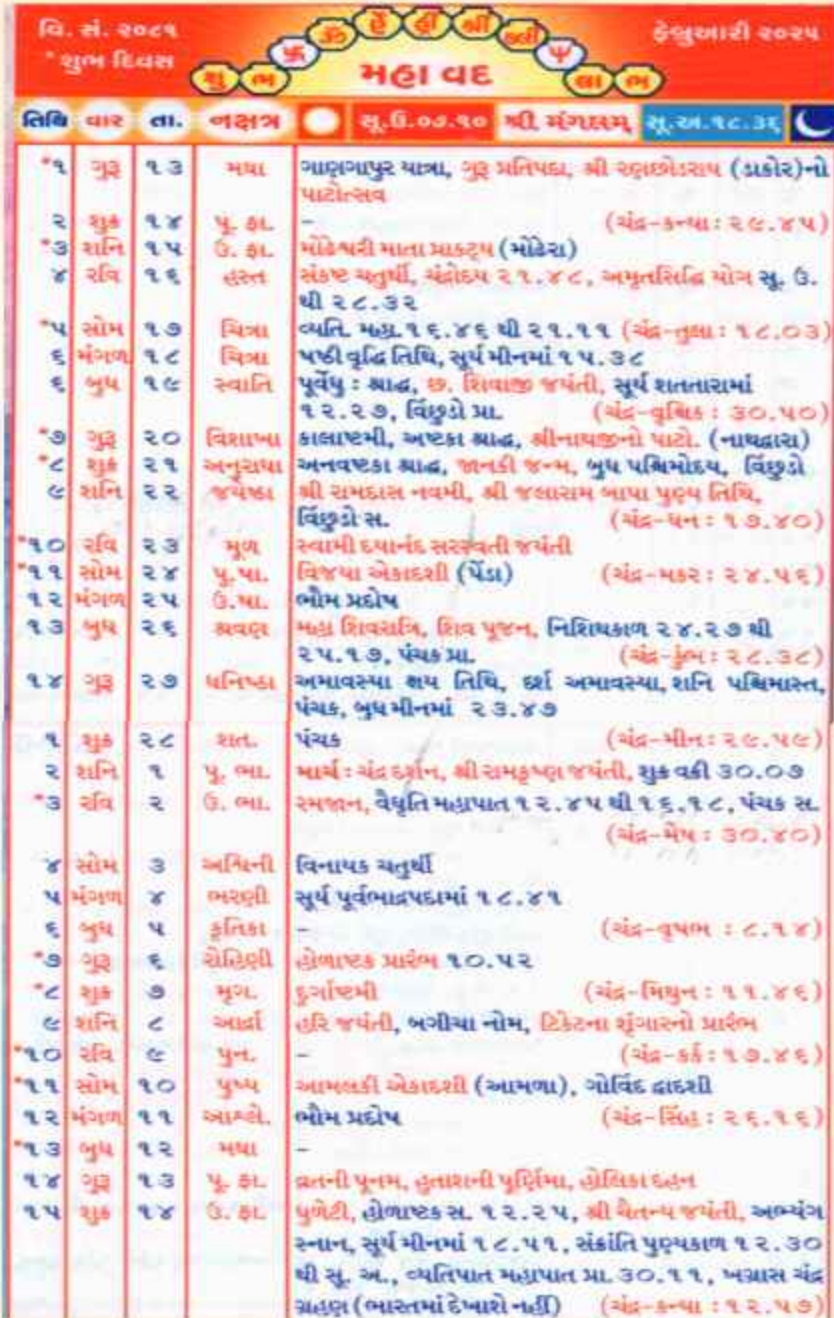 વિ. સં. ૨૦૮૧
* શુભ દિવસ
શુ ભ 卐 ૐ હ્રીં શ્રીં ક્લીં લા ભ
મહા વદ
ફેબ્રુઆરી ૨૦૨૫
તિથિ વાર તા. નક્ષત્ર સૂ.ઉ.૦૭.૧૦ શ્રી મંગલમ્ સૂ.અ.૧૮.૩૬
*૧ ગુરૂ ૧૩ મઘા ગાણગાપુર યાત્રા, ગુરૂ પ્રતિપદા, શ્રી રણછોડરાય (ડાકોર)નો
પાટોત્સવ
૨ શુક્ર ૧૪ પૂ. ફા. – (ચંદ્ર-કન્યા : ૨૯.૪૫)
*૩ શનિ ૧૫ ઉ. ફા. મોઢેશ્વરી માતા પ્રાકટ્ય (મોઢેરા)
૪ રવિ ૧૬ હસ્ત સંકષ્ટ ચતુર્થી, ચંદ્રોદય ૨૧.૪૮, અમૃતસિદ્ધિ યોગ સૂ. ઉ.
થી ૨૮.૩૨
*૫ સોમ ૧૭ ચિત્રા વ્યતિ. મહા. ૧૬.૪૬ થી ૨૧.૧૧ (ચંદ્ર-તુલા : ૧૮.૦૩)
૬ મંગળ ૧૮ ચિત્રા ષષ્ઠી વૃદ્ધિ તિથિ, સૂર્ય મીનમાં ૧૫.૩૮
૬ બુધ ૧૯ સ્વાતિ પૂર્વેધુ : શ્રાદ્ધ, છ. શિવાજી જયંતી, સૂર્ય શતતારામાં
૧૨.૨૭, વિંછુડો પ્રા. (ચંદ્ર-વૃશ્ચિક : ૩૦.૫૦)
*૭ ગુરૂ ૨૦ વિશાખા કાલાષ્ટમી, અષ્ટકા શ્રાદ્ધ, શ્રીનાથજીનો પાટો. (નાથદ્વારા)
*૮ શુક્ર ૨૧ અનુરાધા અનવષ્ટકા શ્રાદ્ધ, જાનકી જન્મ, બુધ પશ્ચિમોદય, વિંછુડો
૯ શનિ ૨૨ જયેષ્ઠા શ્રી રામદાસ નવમી, શ્રી જલારામ બાપા પુણ્ય તિથિ,
વિંછુડો સ. (ચંદ્ર-ધન : ૧૭.૪૦)
*૧૦ રવિ ૨૩ મૂળ સ્વામી દયાનંદ સરસ્વતી જયંતી
*૧૧ સોમ ૨૪ પૂ.ષા. વિજયા એકાદશી (પેંડા) (ચંદ્ર-મકર : ૨૪.૫૬)
૧૨ મંગળ ૨૫ ઉ.ષા. ભૌમ પ્રદોષ
૧૩ બુધ ૨૬ શ્રવણ મહા શિવરાત્રિ, શિવ પૂજન, નિશિથકાળ ૨૪.૨૭ થી
૨૫.૧૭, પંચક પ્રા. (ચંદ્ર-કુંભ : ૨૮.૩૮)
૧૪ ગુરૂ ૨૭ ધનિષ્ઠા અમાવસ્યા ક્ષય તિથિ, દર્શ અમાવસ્યા, શનિ પશ્ચિમાસ્ત,
પંચક, બુધ મીનમાં ૨૩.૪૭
૧ શુક્ર ૨૮ શત. પંચક (ચંદ્ર-મીન : ૨૯.૫૯)
૨ શનિ ૧ પૂ. ભા. માર્ચ : ચંદ્ર દર્શન, શ્રી રામકૃષ્ણ જયંતી, શુક્ર વક્રી ૩૦.૦૭
*૩ રવિ ૨ ઉ. ભા. રમજાન, વૈધૃતિ મહાપાત ૧૨.૪૫ થી ૧૬.૧૮, પંચક સ.
(ચંદ્ર-મેષ : ૩૦.૪૦)
૪ સોમ ૩ અશ્વિની વિનાયક ચતુર્થી
૫ મંગળ ૪ ભરણી સૂર્ય પૂર્વભાદ્રપદામાં ૧૮.૪૧
૬ બુધ ૫ કૃતિકા – (ચંદ્ર-વૃષભ : ૮.૧૪)
*૭ ગુરૂ ૬ રોહિણી હોળાષ્ટક પ્રારંભ ૧૦.૫૨
*૮ શુક્ર ૭ મૃગ. દુર્ગાષ્ટમી (ચંદ્ર-મિથુન : ૧૧.૪૬)
૯ શનિ ૮ આર્દ્રા હરિ જયંતી, બગીચા નોમ, ટિકેટના શૃંગારનો પ્રારંભ
*૧૦ રવિ ૯ પુન. – (ચંદ્ર-કર્ક : ૧૭.૪૬)
*૧૧ સોમ ૧૦ પુષ્ય આમલકી એકાદશી (આમળા), ગોવિંદ દ્વાદશી
૧૨ મંગળ ૧૧ આશ્લે. ભૌમ પ્રદોષ (ચંદ્ર-સિંહ : ૨૬.૧૬)
*૧૩ બુધ ૧૨ મઘા –
૧૪ ગુરૂ ૧૩ પૂ. ફા. વ્રતની પૂનમ, હુતાશની પૂર્ણિમા, હોલિકા દહન
૧૫ શુક્ર ૧૪ ઉ. ફા. ધુળેટી, હોળાષ્ટક સ. ૧૨.૨૫, શ્રી ચૈતન્ય જયંતી, અભ્યંગ
સ્નાન, સૂર્ય મીનમાં ૧૮.૫૧, સંક્રાંતિ પુણ્યકાળ ૧૨.૩૦
થી સૂ. અ., વ્યતિપાત મહાપાત પ્રા. ૩૦.૧૧, ખગ્રાસ ચંદ્ર
ગ્રહણ (ભારતમાં દેખાશે નહીં) (ચંદ્ર-કન્યા : ૧૨.૫૭)